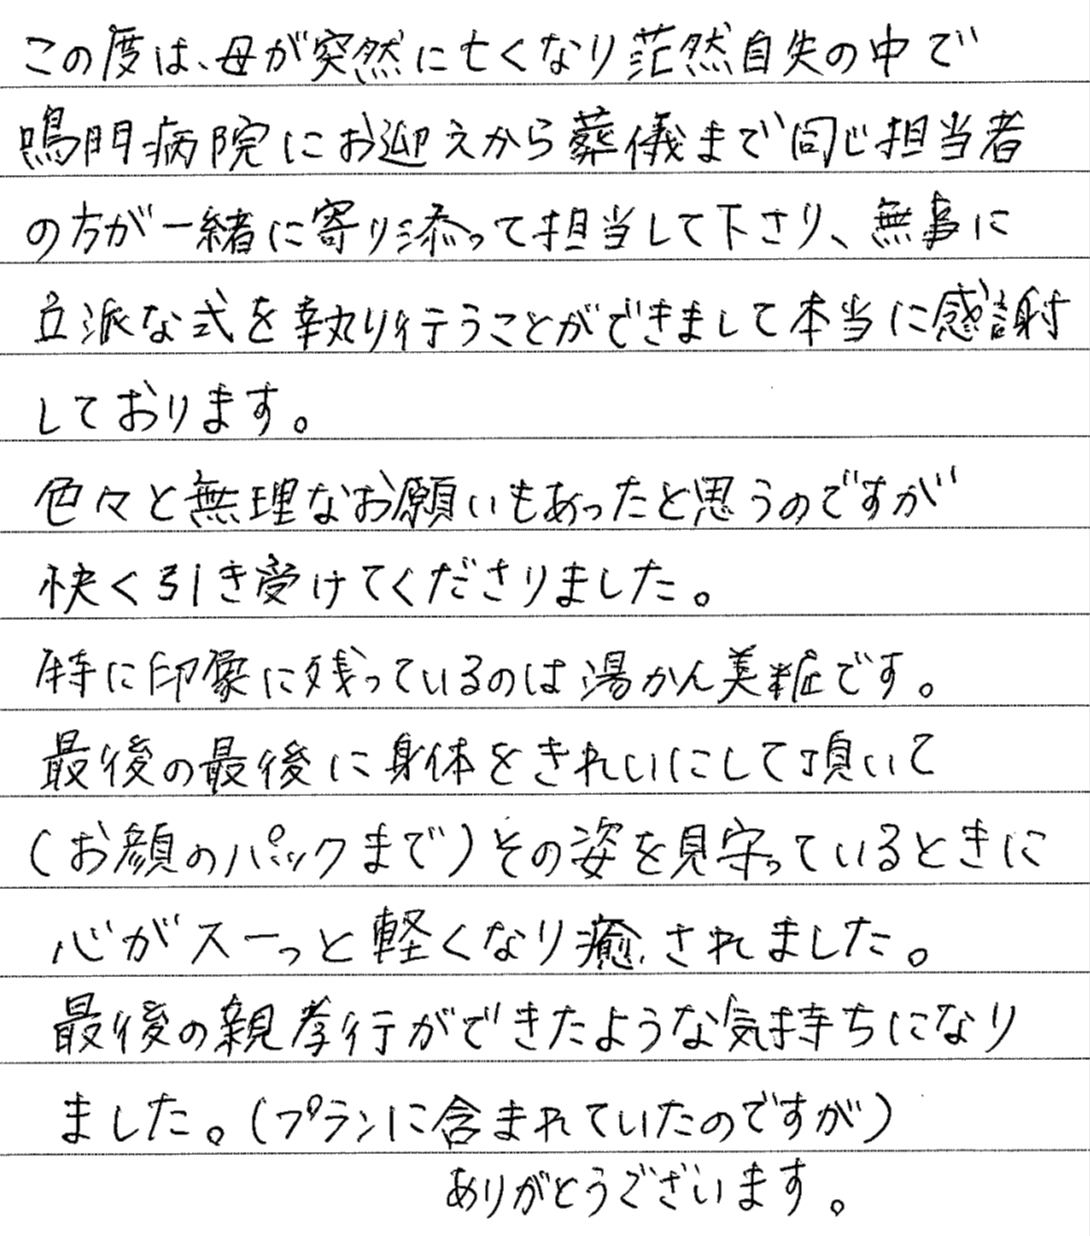 この度は、母が突然に亡くなり茫然自失の中で
鳴門病院にお迎えから葬儀まで同じ担当者
の方が一緒に寄り添って担当して下さり、無事に
立派な式を執り行うことができまして本当に感謝
しております。
色々と無理なお願いもあったと思うのですが
快く引き受けてくださりました。
特に印象に残っているのは湯かん美粧です。
最後の最後に身体をきれいにして頂いて
(お顔のパックまで)その姿を見守っているときに
心がスーっと軽くなり癒されました。
最後の親孝行ができたような気持ちになり
ました。(プランに含まれていたのですが)
ありがとうございます。